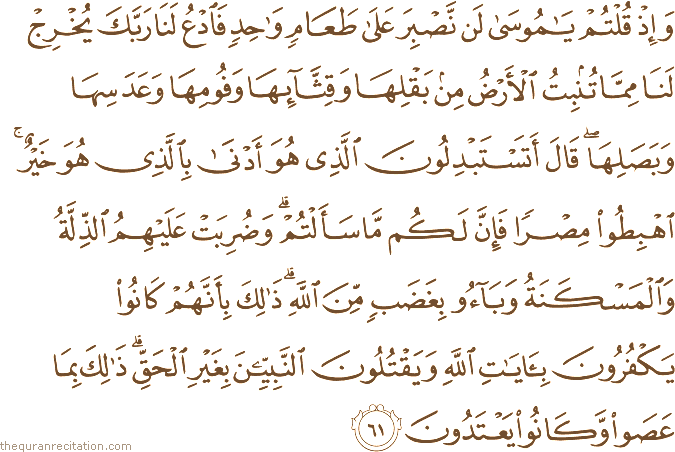 وَإِذْ قُلْتُمْ يَـٰمُوسَىٰ لَن نَّصْبِرَ عَلَىٰ طَعَامٍ وَٰحِدٍ فَٱدْعُ لَنَا رَبَّكَ يُخْرِجْ
لَنَا مِمَّا تُنۢبِتُ ٱلْأَرْضُ مِنۢ بَقْلِهَا وَقِثَّآئِهَا وَفُومِهَا وَعَدَسِهَا
وَبَصَلِهَا ۖ قَالَ أَتَسْتَبْدِلُونَ ٱلَّذِى هُوَ أَدْنَىٰ بِٱلَّذِى هُوَ خَيْرٌ ۚ
ٱهْبِطُوا۟ مِصْرًا فَإِنَّ لَكُم مَّا سَأَلْتُمْ ۗ وَضُرِبَتْ عَلَيْهِمُ ٱلذِّلَّةُ
وَٱلْمَسْكَنَةُ وَبَآءُو بِغَضَبٍ مِّنَ ٱللَّهِ ۗ ذَٰلِكَ بِأَنَّهُمْ كَانُوا۟
يَكْفُرُونَ بِـَٔايَـٰتِ ٱللَّهِ وَيَقْتُلُونَ ٱلنَّبِيِّـۧنَ بِغَيْرِ ٱلْحَقِّ ۗ ذَٰلِكَ بِمَا
عَصَوا۟ وَّكَانُوا۟ يَعْتَدُونَ ٦١
thequranrecitation.com